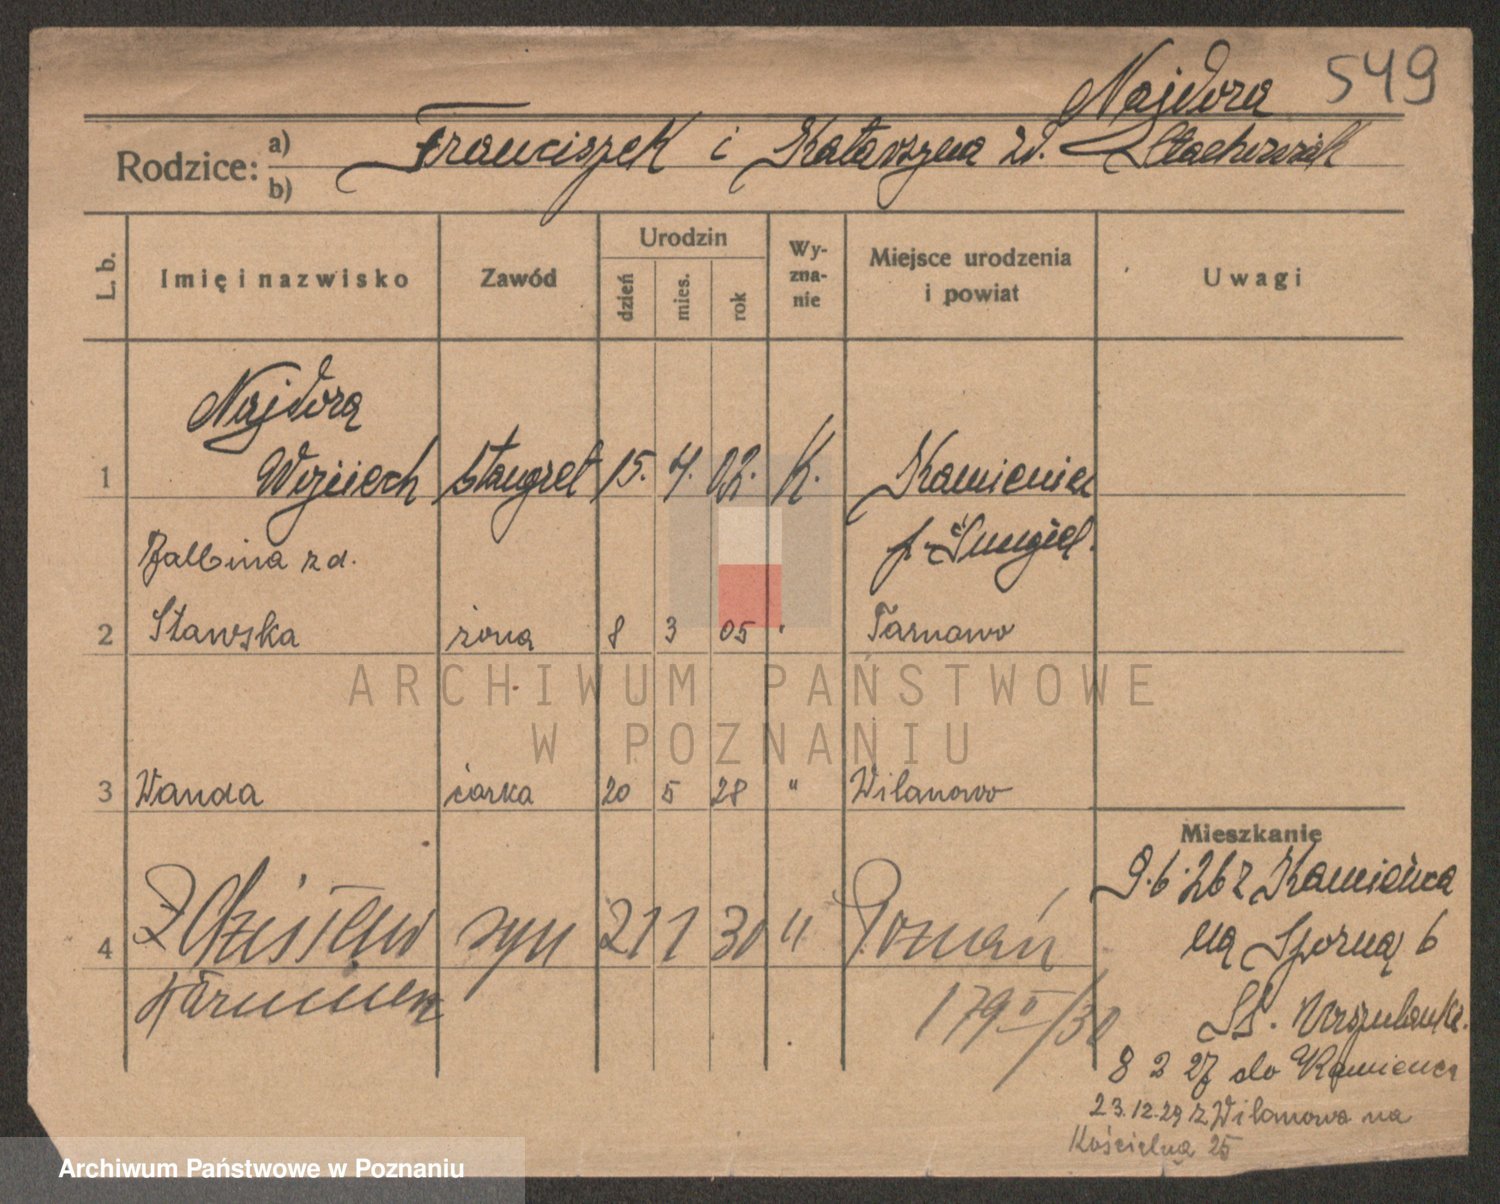 549
Najdora
Rodzice: a) Franciszek i Katarzyna zd. Stachowiak
b)
L. b. Imię i nazwisko Zawód Urodzin dzień mies. rok Wy-zna-nie Miejsce urodzenia i powiat Uwagi
Najdora
1 Wojciech stangret 15. 4. 02. K. Kamieniec
p. Śmigiel.
Balbina zd.
2 Stawska żona 8 3 05 " Tarnowo
ARCHIWUM PAŃSTWOWE
W POZNANIU
3 Wanda córka 20 5 28 " Wilanowo
Mieszkanie
9.6.26 z Kamieńca
na Sporną 6
4 Zdzisław syn 21 1 30 " Poznań
179 II/30
SS. Urszulanki.
8 2 27 do Kamieńca
23.12.29 z Wilanowa na
Kościelną 25
Archiwum Państwowe w Poznaniu